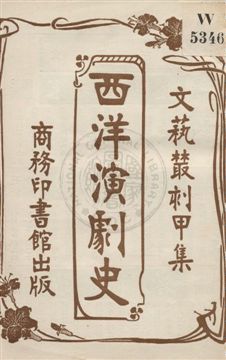 W
5346
文藝叢刻甲集
西洋演劇史
商務印書館出版